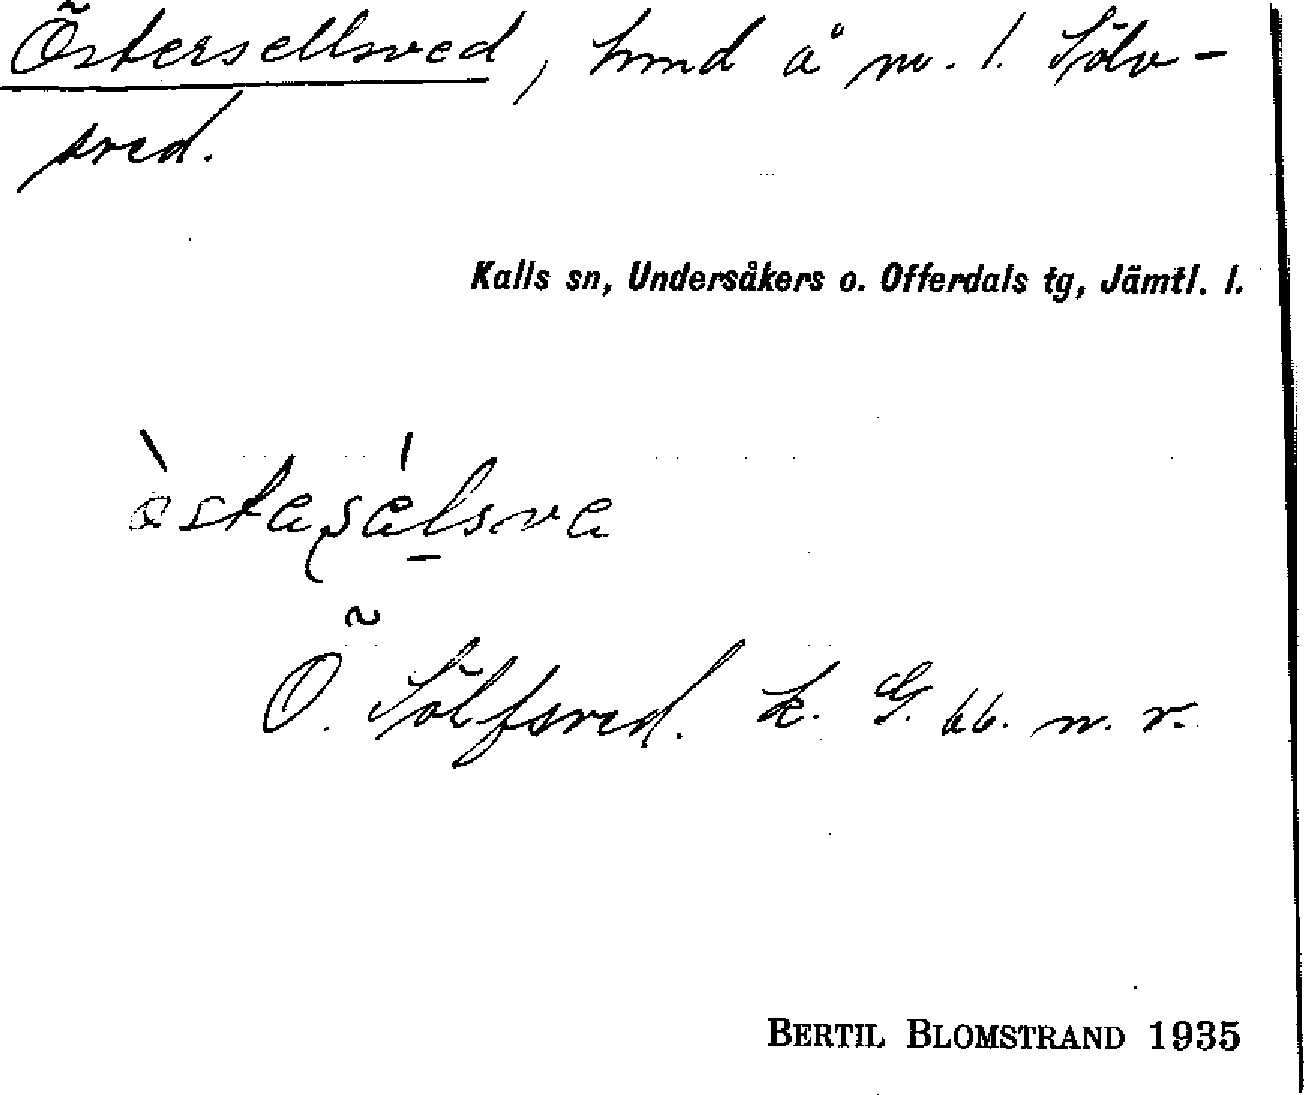 Östersellsved, hmd å nr. 1. Sölv-
sved.
Kalls sn, Undersåkers o. Offerdals tg, Jämtl. l.
östasälsve
Ö. Sölfsved. k. G. bb. n. r.
BERTIL BLOMSTRAND 1935